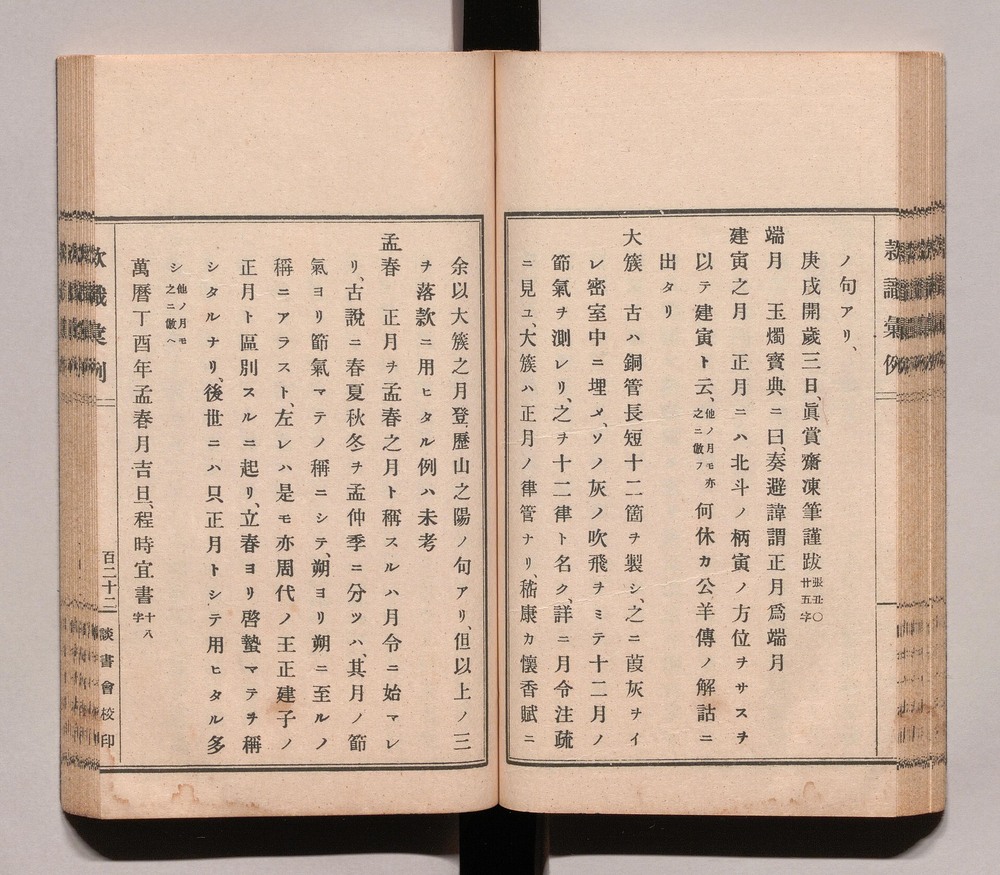 款識彙例
ノ句アリ、
庚戌開歲三日、眞賞齋凍筆謹跋 張丑○廿五字
端月　玉燭寶典ニ曰、奏避諱謂正月爲端月
建寅之月　正月ニハ北斗ノ柄寅ノ方位ヲサスヲ
以テ建寅ト云、他ノ月モ亦之ニ倣フ 何休カ公羊傳ノ解詁ニ
出タリ
大簇　古ハ銅管長短十二箇ヲ製シ、之ニ葭灰ヲイ
レ密室中ニ埋メ、ソノ灰ノ吹飛ヲミテ十二月ノ
節氣ヲ測レリ、之ヲ十二律ト名ク、詳ニ月令注疏
ニ見ユ、大簇ハ正月ノ律管ナリ、嵇康カ懷香賦ニ
余以大簇之月登歷山之陽ノ句アリ、但以上ノ三
ヲ落款ニ用ヒタル例ハ未考
孟春　正月ヲ孟春之月ト稱スルハ月令ニ始マレ
リ、古說ニ春夏秋冬ヲ孟仲季ニ分ツハ、其月ノ節
氣ヨリ節氣マテノ稱ニシテ、朔ヨリ朔ニ至ルノ
稱ニアラスト、左レハ是モ亦周代ノ王正建子ノ
正月ト區別スルニ起リ、立春ヨリ啓蟄マテヲ稱
シタルナリ、後世ニハ只正月トシテ用ヒタル多
シ 他ノ月モ之ニ倣ヘ
萬曆丁酉年孟春月吉旦、程時宜書 十八字
款識彙例
百二十二
談書會校印